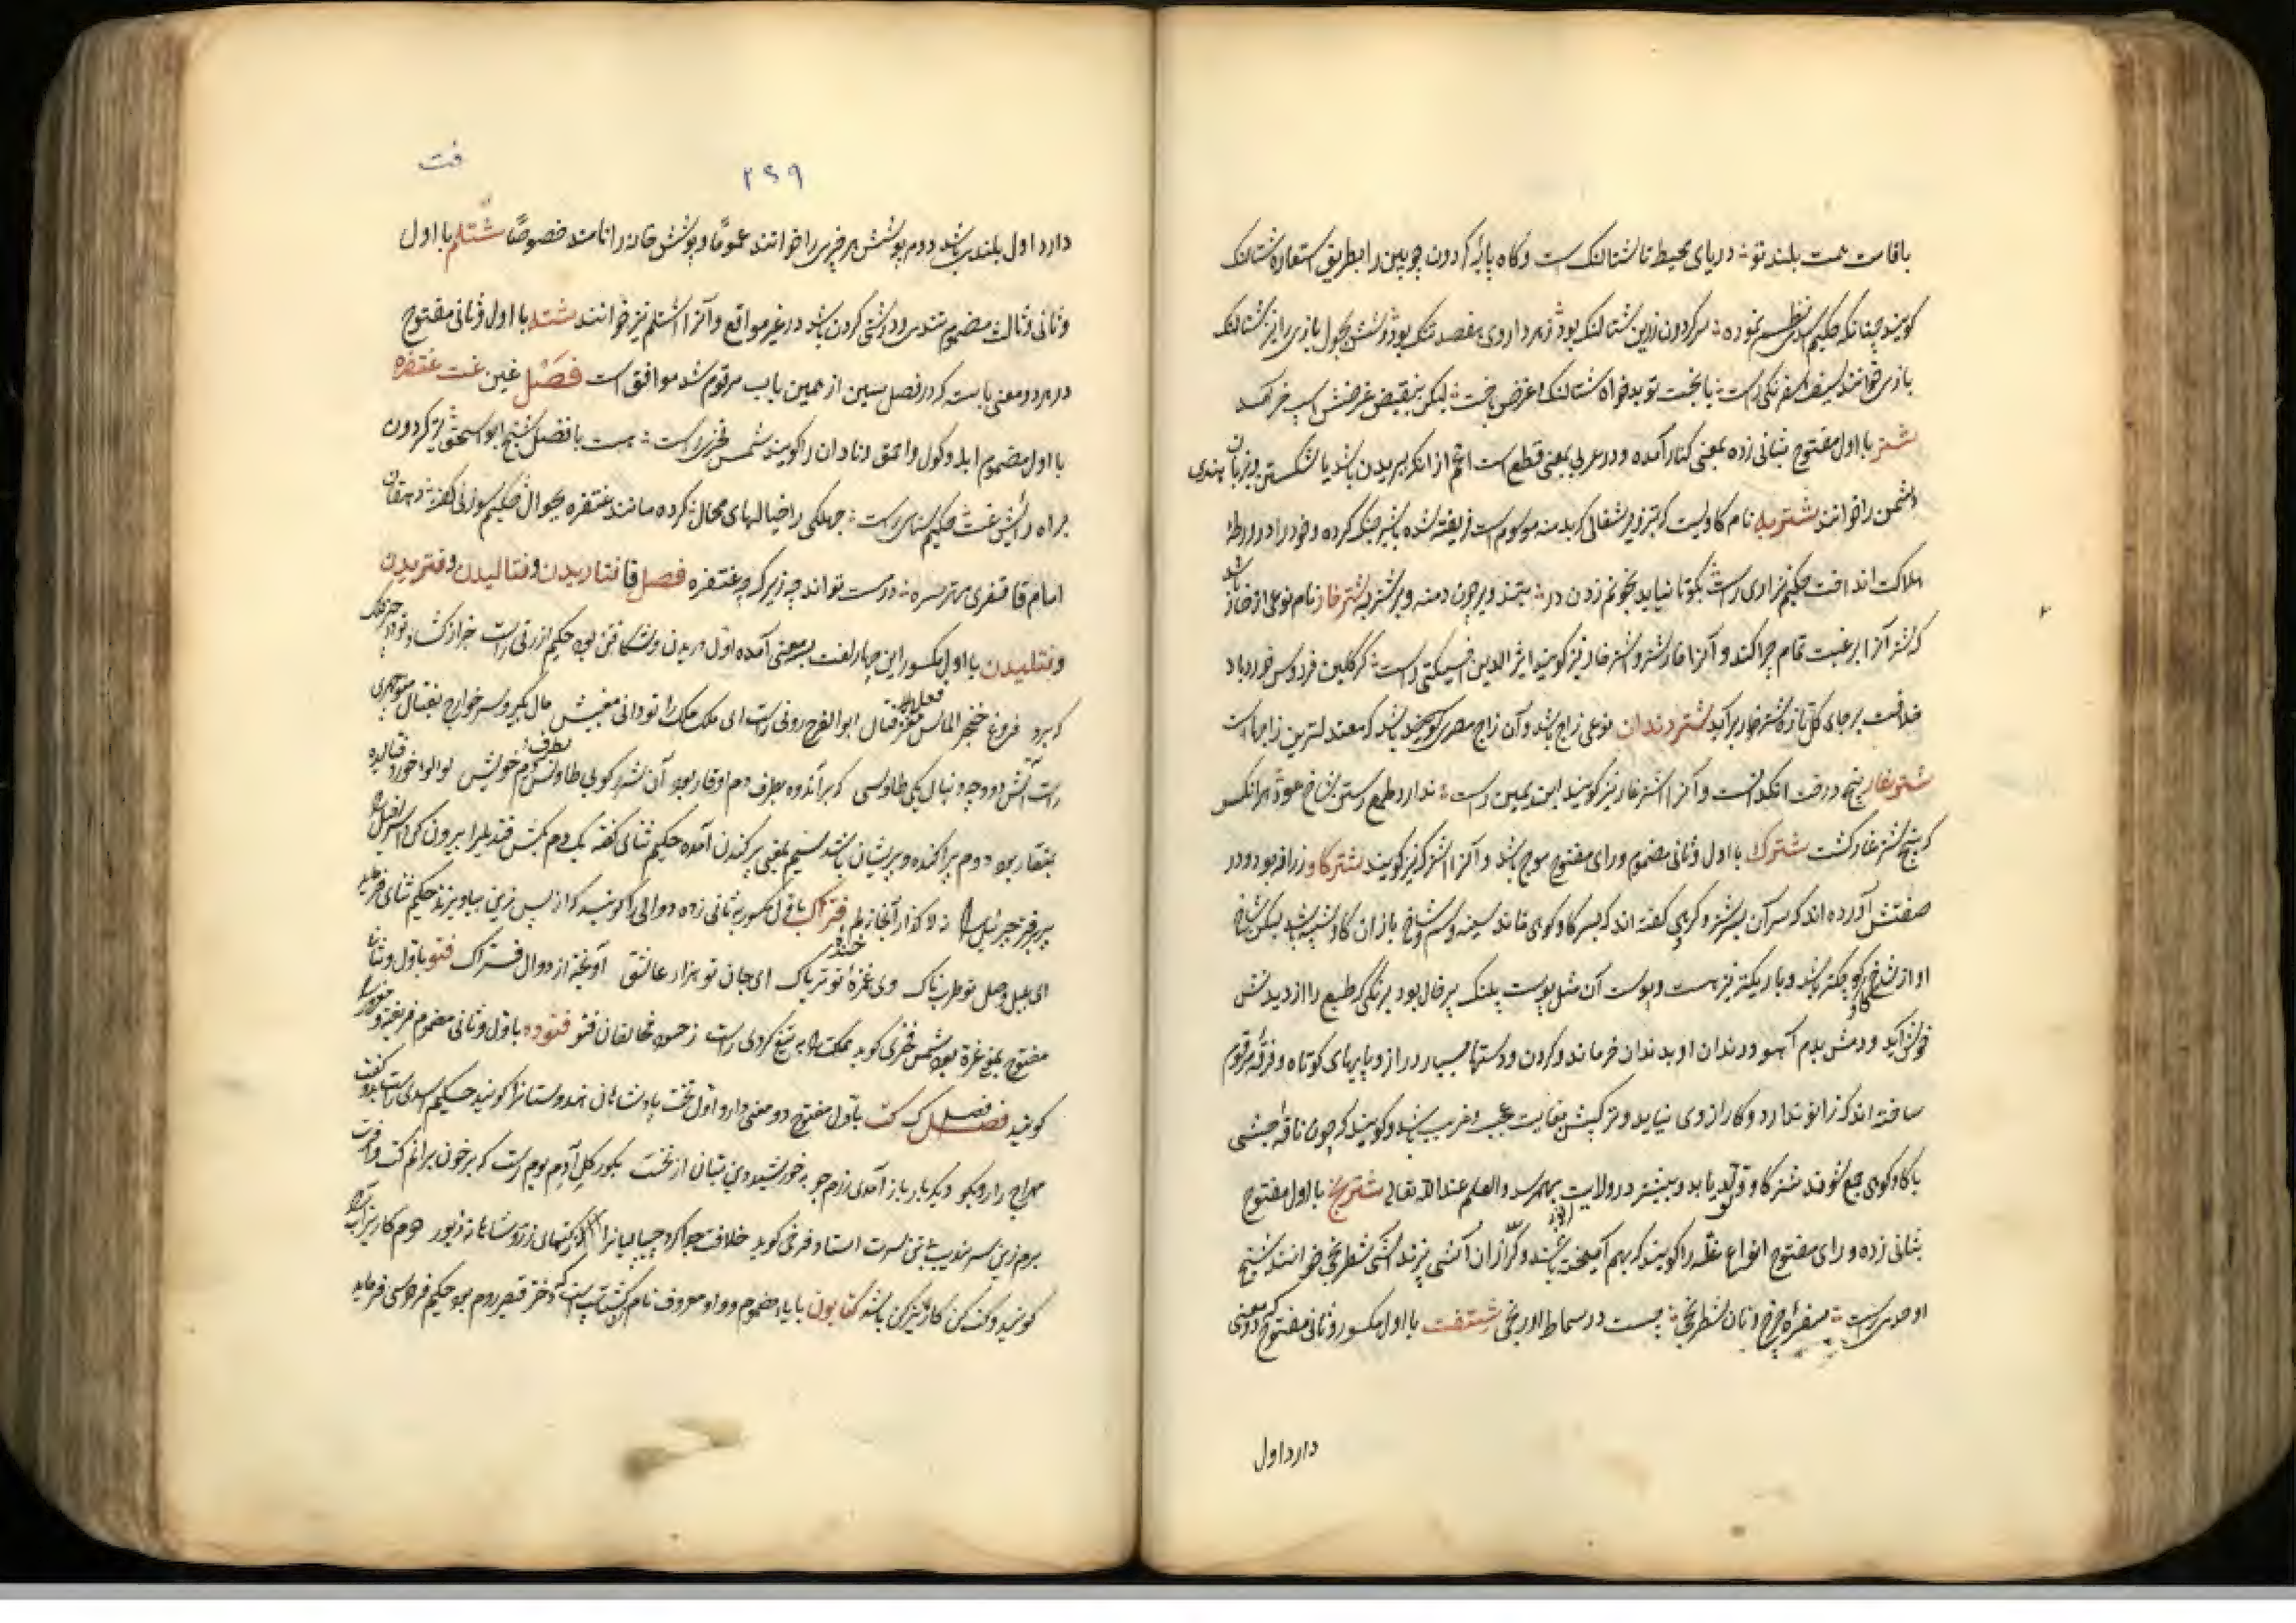 باقامت همت بلند تو دریای محیط تا شتالنک است و کاه پایه کردون چوبین را بطریق استعاره شتالنک
کویند چنانکه حکیم نظم نموده سر کردون زرین شتالنک بود
بازی خوانند سیف اسفرنکی راست با بخت تو بدخواه شتالنک غرض باخت لیکن بنقیض غرضش اسب خر آمد
شتر با اول مفتوح بثانی زده بمعنی کنار آمده و در عربی بمعنی قطع است اعم از انکه بریدن باشد یا شکستن و بزبان هندی
دشمن را خوانند شتربه نام کاویست که بتزویر شغالی که بدمنه موسوم است فریفته شده باشیر جنک کرده و خود را در ورطه
هلاکت انداخت حکیم نزاری راست بکوتا نیاید بخونم زدن در دمنه و بر شتربه شترخار نام نوعی از خار باشد
که شتر آنرا برغبت تمام چرا کند و آنرا خارشتر و اشترخار نیز کویند اثیر الدین اخسیکتی راست کر کلبن فردوس خورد باد
خلافت بر جای کل تازه شترخار برآید شتردندان نوعی زاج باشد و آن زاج مصری کویند باشد که معتدلترین زاجهاست
شترغار بیخ درخت انکدانست و آنرا اشترغار نیز کویند ابن یمین راست ندارد طمع رستن شاخ عود هرانکس
که بیخ شترغار کشت شترک با اول و ثانی مضموم و رای مفتوح موج باشد و آنرا اشترک نیز کویند شترکاو زرافه بود و در
صفتش آورده اند که سرآن بسر شتر و کروهی کفته اند که بسر کاو کوهی ماند سینه و سم و شاخ بازان کاو شبیه باشد لیکن شاخ
او از شاخ کاو کوچکتر باشد و باریکتر نیز هست و پوست آن مثل پوست پلنک پرخال بود برنکی که طبع را از دیدنش
خوش آید و دمش بدم آهو و دندان او بدندان خر ماند و کردن و دستها بسیار دراز و پایهای کوتاه و فرقه مرقوم
ساخته اند که زانو ندارد و کار از وی نیاید و ترکیبش بغایت عجیب و غریب باشد و کویند که چون ناقه حبشی
با کاو کوهی جمع شوند شترکاو تولد یابد و بیشتر در ولایت بهم رسد والعلم عند الله تعالی شترنج با اول مفتوح
بثانی زده و رای مفتوح انواع غله را کویند که بهم آمیخته باشند و اکر ازان آش پزند آش شطرنجی خوانند شیخ
اوحدی راست سفره چرخ و نان شطرنجی چیست در سماط اورنجی شتفت با اول مکسور و ثانی مفتوح دو معنی
دارد اول
فت
۲۶۹
دارد اول بلندی باشد دوم پوشش هر چیزی را خوانند عموما و پوشش خانه را نامند خصوصا شتلم با اول
و ثانی و ثالث مضموم تندی و درشتی کردن باشد در غیر مواقع و آنرا اشتلم نیز خوانند شته با اول و ثانی مفتوح
در هر دو معنی باسته که در فصل سین از همین باب مرقوم شد موافق است فصل غین غت غتفره
با اول مضموم ابله و کول و احمق و نادان را کویند شمس فخری راست هست با فضل شیخ ابو اسحق پیر کردون
براه دانش غت حکیم سنائی راست جهلکی را خیالهای محال کرده مانند غتفره بجوال حکیم سوزنی کفته دهقان
امام غاتفری مهتر سره درست تواند چه زیرک چه غتفره فصل فا فتاریدن و فتالیدن و فتریدن
و فتلیدن با اول مکسور این چهار لغت بسه معنی آمده اول دریدن و شکافتن بود حکیم ازرقی راست
که برد فروغ خنجر الماس فعل مغز فتال ابوالفرج رونی راست ای ملک ملک را تو دانی مال کیر و سر خوارج بفتال منوچهری
راست آتش و دود چو دنبال یکی طاوسی که برآندوده بطرف دم او قار بود آن شرر کوئی طاوس بکرد دم خویش لولو خورد فتالیده
بمنقار بود دوم پراکنده و پریشان باشد سیم بمعنی برکندن آمده حکیم سنائی کفته یک دم بکش قندیل را بیرون کن اسرافیل را
پر برفتر جبرئیل را نه لا کذار آنجا نه لم فتراک با اول مکسور بثانی زده دوالی را کویند که از پس زین بیاویزند حکیم سنائی فرماید
ای بلبل وصل تو طربناک وی غمزه تو تریاک ای جان تو هزار عاشق آویخته از دوال فتراک فتو با اول و ثانی
مفتوح بمعنی غره بود شمس فخری کوید مملکت را به تیغ کردی راست ز حسود مخالفان فتو فتوده با اول و ثانی مضموم فریفته و مغرور را
کویند فصل ک کت با اول مفتوح دو معنی دارد اول تخت پادشاهان هندوستانرا کویند حکیم اسدی راست بدو کفت
مهراج را رو بکو دیکربار باز آمدی رزم جو به خورشید و دین بتان از نخست بکور کل آدم بوم رست که بر خون برانم کت و افسرت
برم زی سرندیب بی تن سرت استاد فرخی کوید خلافت جدا کرد چیپالیانرا ز کتهای زر و شاهانه زیور دوم کاریز آب را
کویند و کت کن کاریز کن باشد کتایون با یاء مضموم و واو معروف نام زن کشتاسپ است که دختر قیصر روم بود حکیم فردوسی فرماید